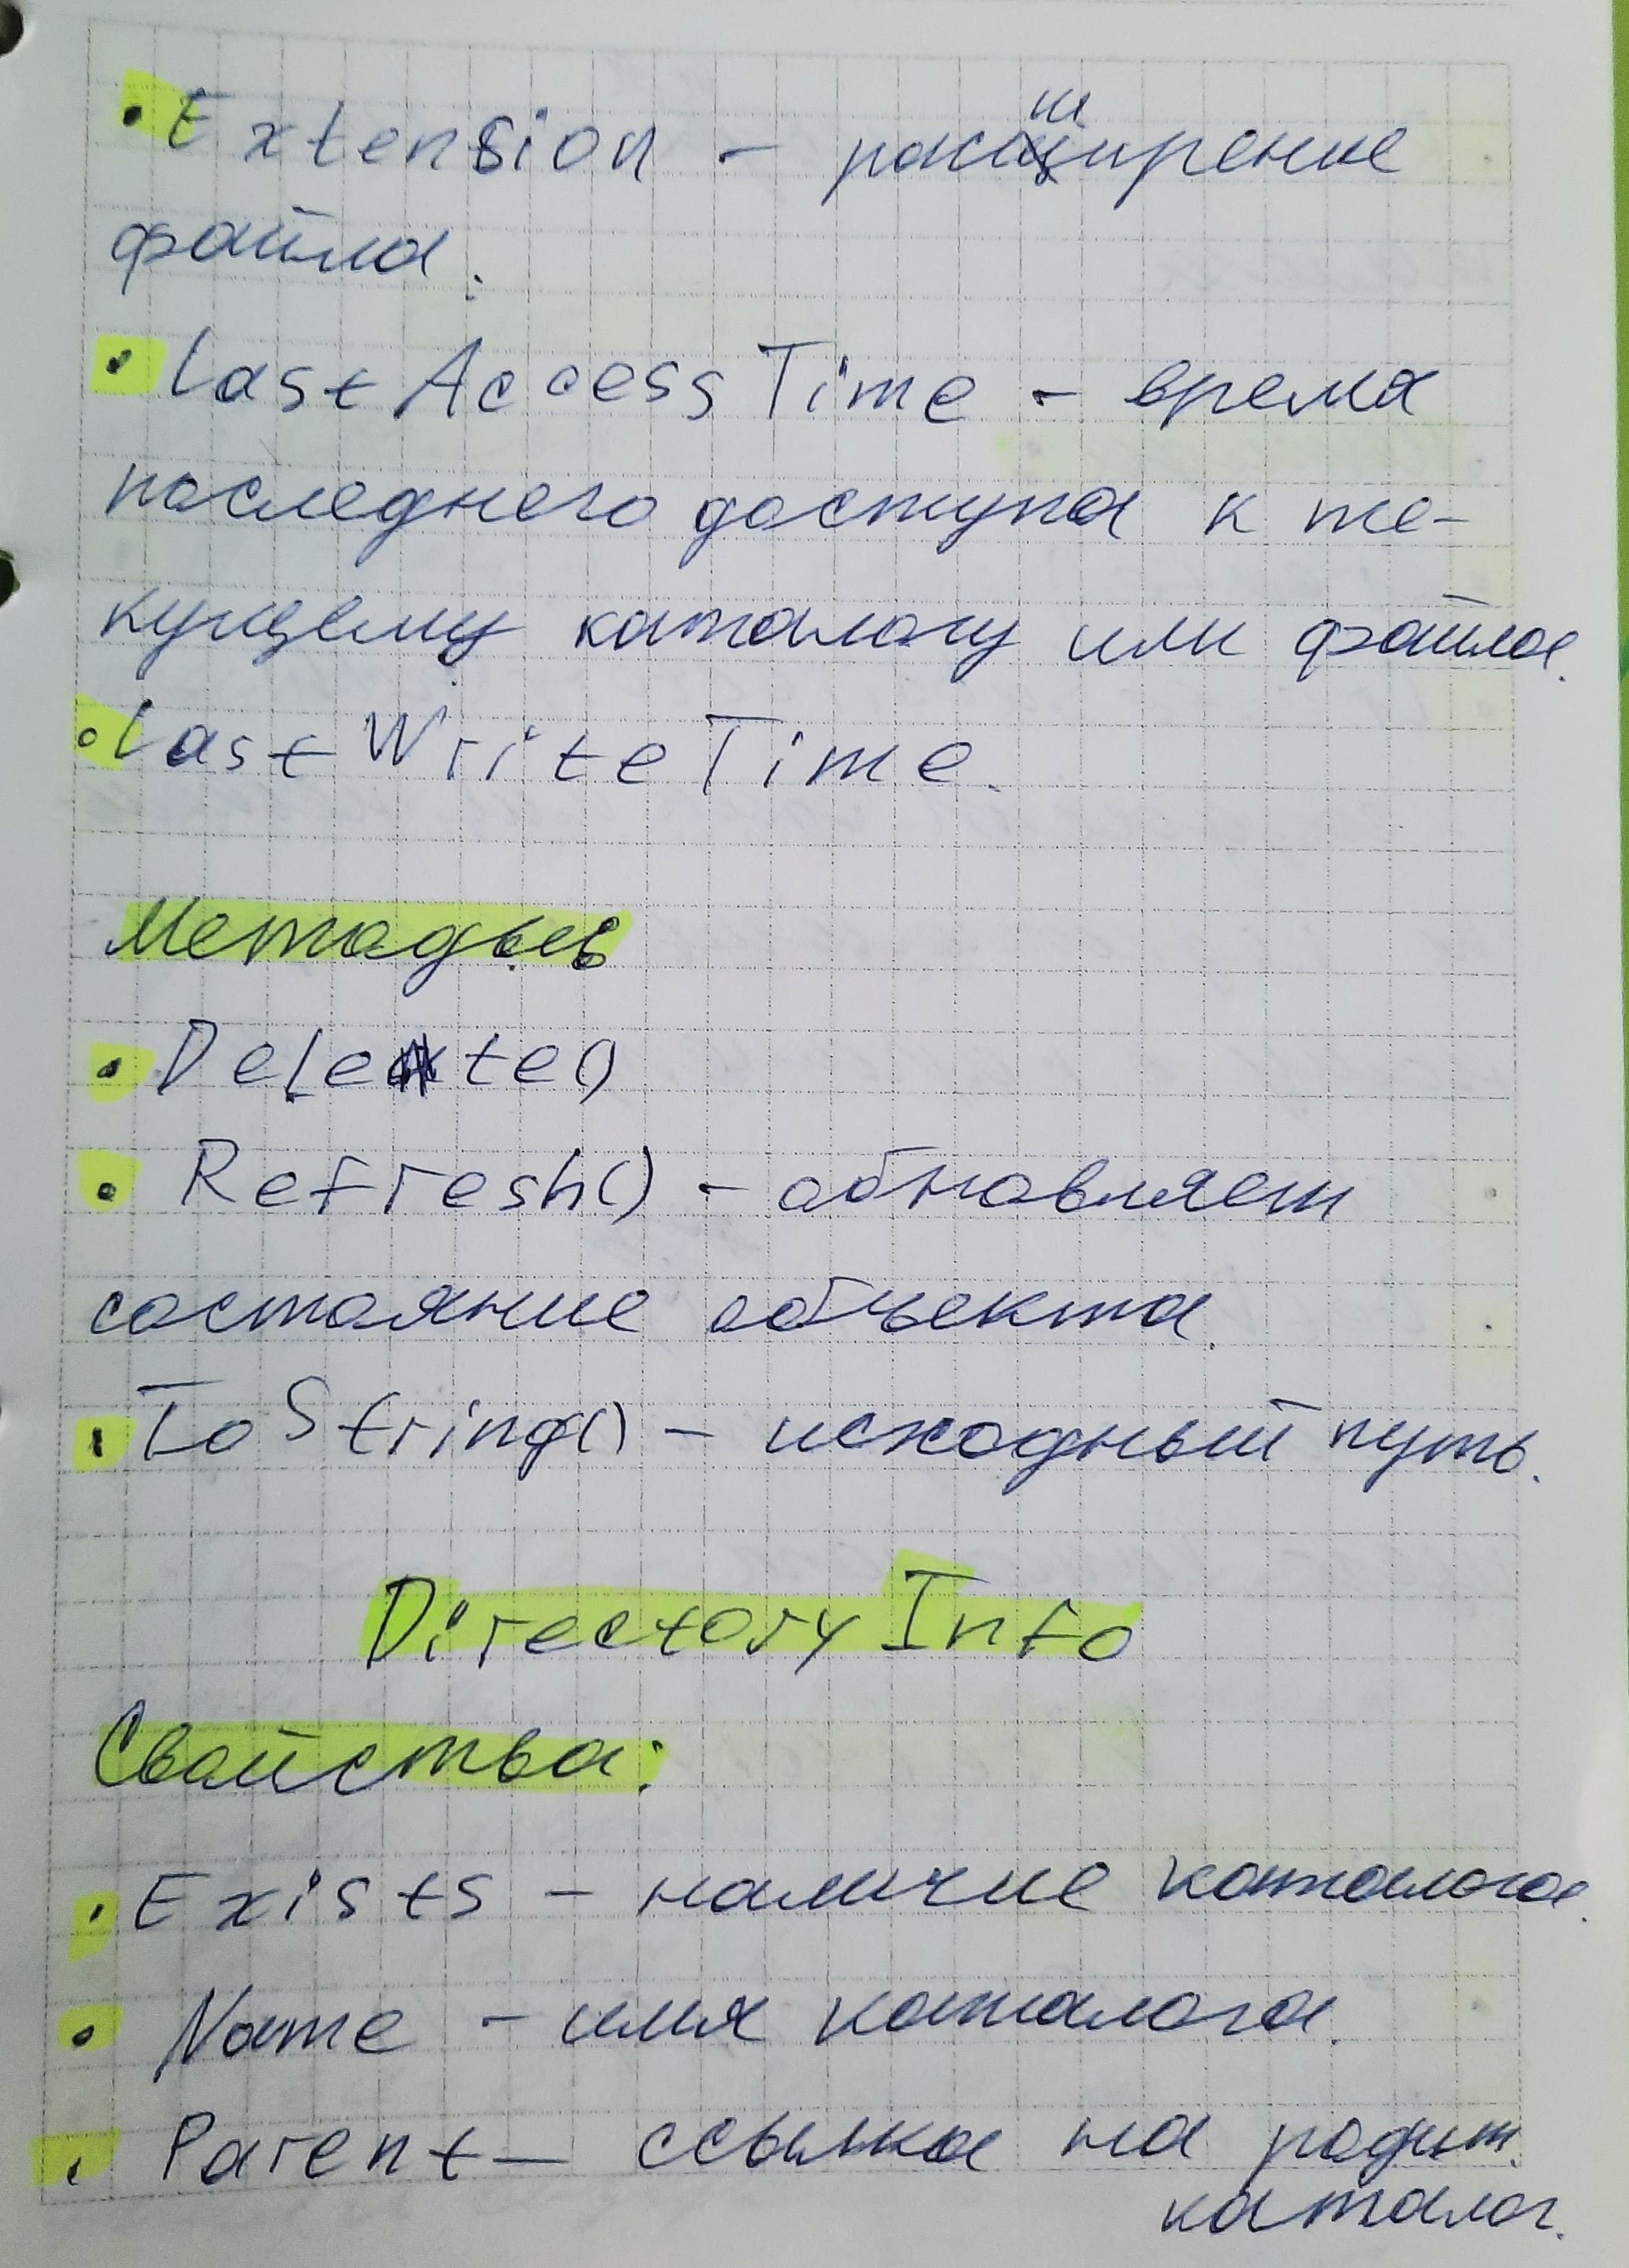 • Extension - расширение
файла.
• LastAccessTime - время
последнего доступа к те-
кущему каталогу или файла.
• LastWriteTime.
Методы
• Delete()
• Refresh() - обновляет
состояние объекта.
• ToString() - исходный путь.
DirectoryInfo
Свойства:
• Exists - наличие каталога.
• Name - имя каталога.
• Parent - ссылка на родит.
каталог.